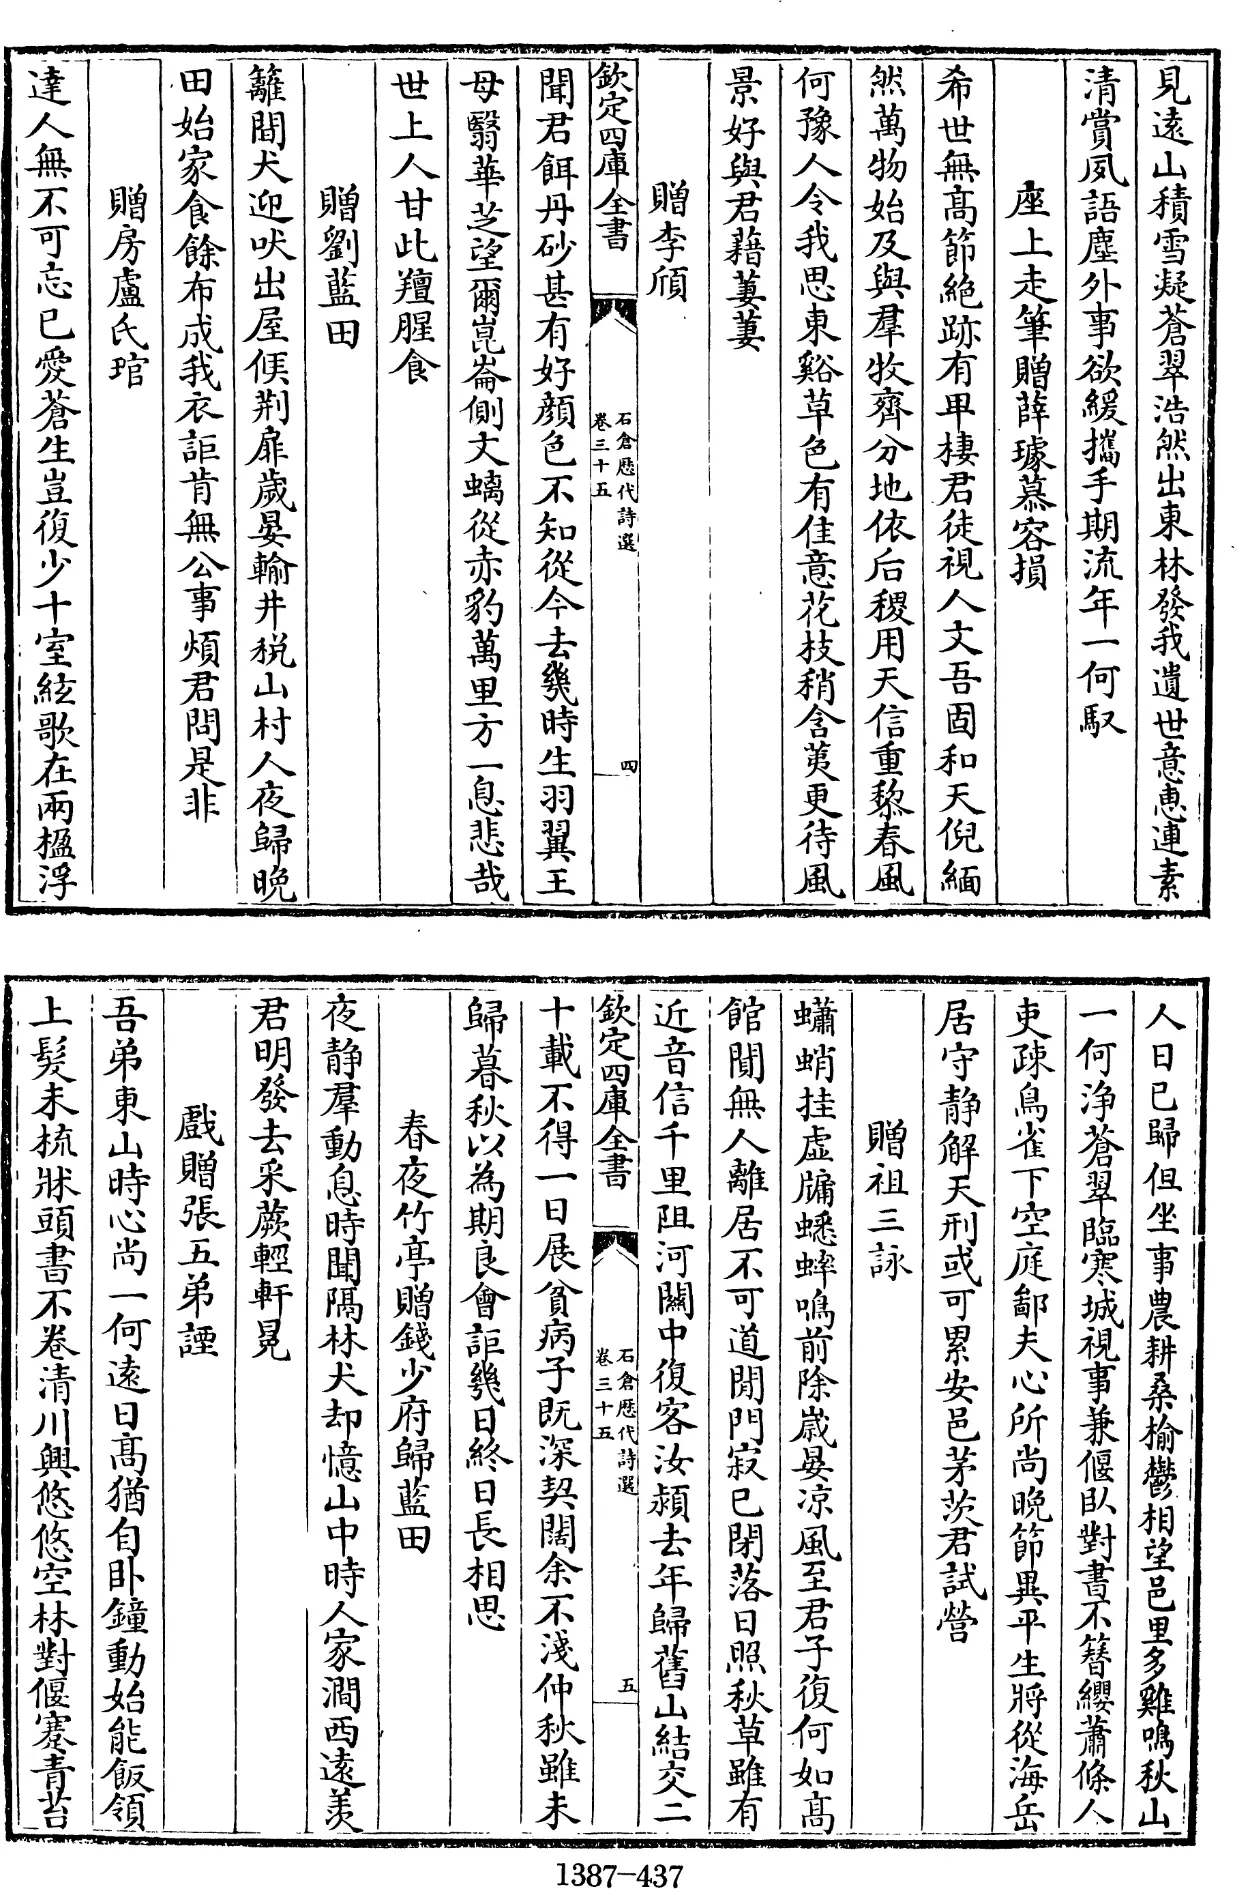 見遠山積雪凝蒼翠浩然出東林發我遺世意惠連素
清賞夙語塵外事欲緩攜手期流年一何馭
座上走筆贈薛璩慕容損
希世無高節絶跡有卑棲君徒視人文吾固和天倪緬
然萬物始及與羣牧齊分地依后稷用天信重黎春風
何豫人令我思東谿草色有佳意花枝稍含荑更待風
景好與君藉萋萋
贈李頎
欽定四庫全書
石倉歷代詩選
卷三十五
四
聞君餌丹砂甚有好顔色不知從今去幾時生羽翼王
母翳華芝望爾崑崙側文螭從赤豹萬里方一息悲哉
世上人甘此羶腥食
贈劉藍田
籬間犬迎吠出屋候荆扉歲晏輸井税山村人夜歸晩
田始家食餘布成我衣詎肯無公事煩君問是非
贈房盧氏琯
達人無不可忘已愛蒼生豈復少十室絃歌在兩楹浮
人日已歸但坐事農耕桑榆鬱相望邑里多雞鳴秋山
一何浄蒼翠臨寒城視事兼偃臥對書不簪纓蕭條人
吏疎鳥雀下空庭鄙夫心所尚晩節異平生將從海岳
居守静解天刑或可累安邑茅茨君試營
贈祖三詠
蠨蛸挂虚牖蟋蟀鳴前除歳晏凉風至君子復何如髙
館闃無人離居不可道閒門寂已閉落日照秋草雖有
近音信千里阻河關中復客汝潁去年歸舊山結交二
欽定四庫全書
石倉歷代詩選
卷三十五
五
十載不得一日展貧病子既深契闊余不淺仲秋雖未
歸暮秋以為期良會詎幾日終日長相思
春夜竹亭贈錢少府歸藍田
夜静羣動息時聞隔林犬却憶山中時人家澗西遠羡
君明發去采蕨輕軒冕
戲贈張五弟諲
吾弟東山時心尚一何遠日髙猶自卧鐘動始能飯領
上髮未梳牀頭書不卷清川興悠悠空林對偃蹇青苔
1387-437